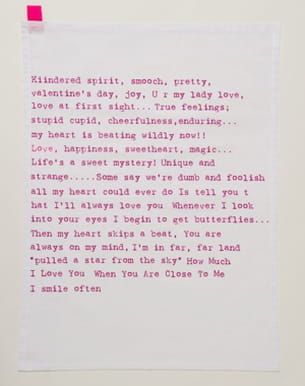 Kiindered spirit, smooch, pretty,
valentine's day, joy, U r my lady love,
love at first sight... True feelings;
stupid cupid, cheerfulness,enduring...
my heart is beating wildly now!!
Love, happiness, sweetheart, magic...
Life's a sweet mystery! Unique and
strange.....Some say we're dumb and foolish
all my heart could ever do Is tell you t
hat I'll always love you Whenever I look
into your eyes I begin to get butterflies...
Then my heart skips a beat, You are
always on my mind, I'm in far, far land
"pulled a star from the sky" How Much
I Love You When You Are Close To Me
I smile often